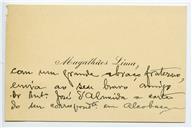 Magalhães Lima,
com um grande abraço fraterno,
envia ao seu bravo amigo
Dr. Antº José d'Almeida a carta
do seu correspondte em Alcobaça